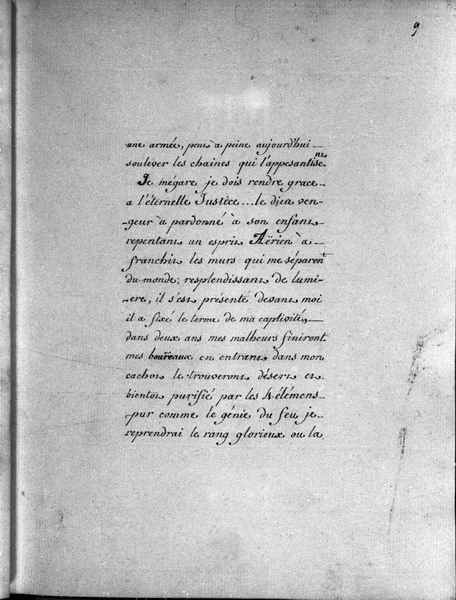 9
une armée, peut à peine aujourd'hui
soulever les chaines qui l'appesantissent
Je mégare je dois rendre grace
a l'éternelle Justice... le dieu ven-
-geur à pardonné à son enfant
repentant un esprit Aërien à
franchit les murs qui me séparent
du monde; resplendissant de lumi-
-ere, il s'est présenté devant moi
il a fixé le terme de ma captivité,
dans deux ans mes malheurs finiront
mes boureaux en entrant dans mon
cachot le trouveront désert et
bientot purifié par les 4 élémens
pur comme le génie du feu je
reprendrai le rang glorieux ou la